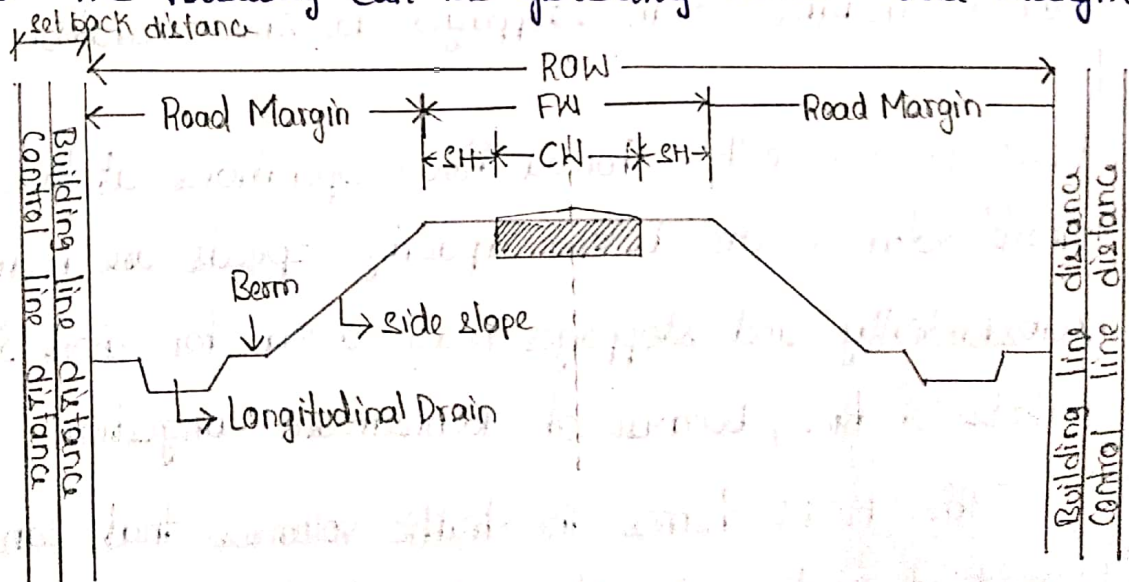 set back distance
ROW
Road Margin
FW
Road Margin
SH
CW
SH
Control line distance
Building line distance
Berm
side slope
Longitudinal Drain
Building line distance
Control line distance